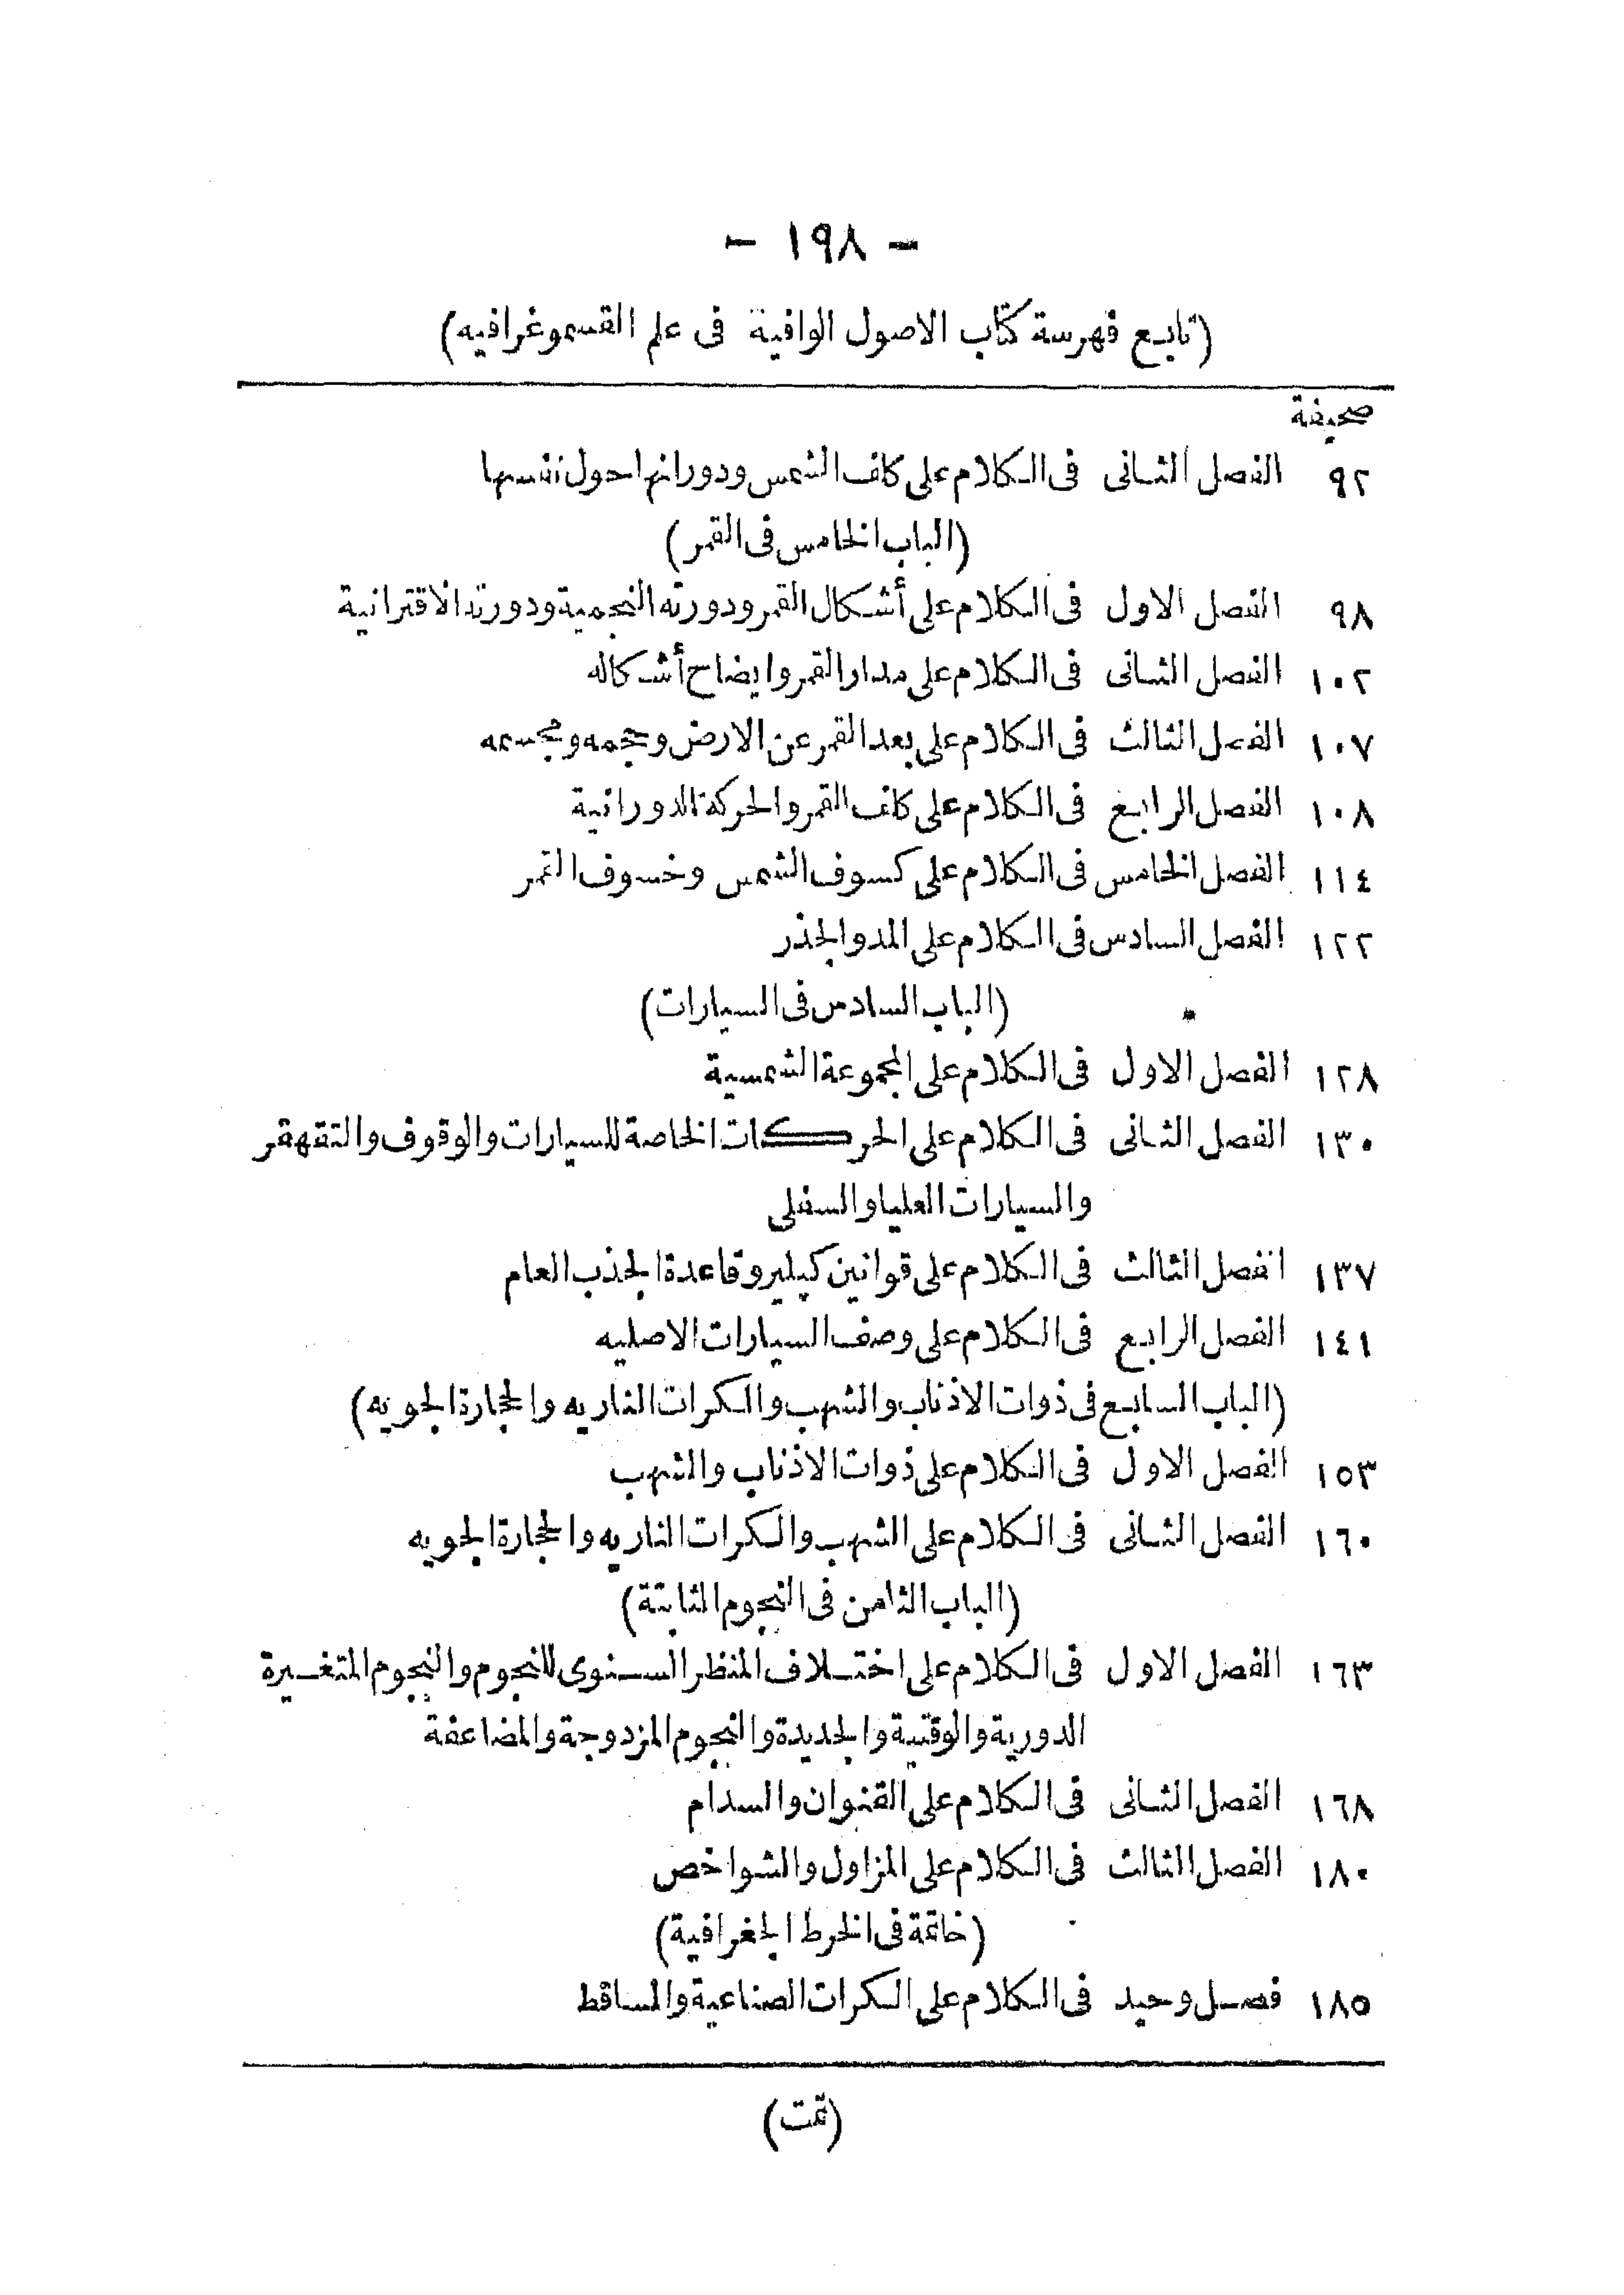 - ١٩٨ -
(تابع فهرسة كتاب الاصول الوافية فى علم القسموغرافيه)
صحيفة
٩٢ الفصل الثانى فى الكلام على كلف الشمس ودورانها حول نفسها
(الباب الخامس فى القمر)
٩٨ الفصل الاول فى الكلام على أشكال القمر ودورته النجمية ودورته الاقترانية
١٠٢ الفصل الثانى فى الكلام على مدار القمر وايضاح أشكاله
١٠٧ الفصل الثالث فى الكلام على بعد القمر عن الارض وحجمه ومجسمه
١٠٨ الفصل الرابع فى الكلام على كلف القمر والحركة الدورانية
١١٤ الفصل الخامس فى الكلام على كسوف الشمس وخسوف القمر
١٢٢ الفصل السادس فى الكلام على المد والجذر
(الباب السادس فى السيارات)
١٢٨ الفصل الاول فى الكلام على المجموعة الشمسية
١٣٠ الفصل الثانى فى الكلام على الحركات الخاصة للسيارات والوقوف والتقهقر
والسيارات العليا والسفلى
١٣٧ الفصل الثالث فى الكلام على قوانين كپلير وقاعدة الجذب العام
١٤١ الفصل الرابع فى الكلام على وصف السيارات الاصليه
(الباب السابع فى ذوات الاذناب والشهب والكرات الناريه والحجارة الجويه)
١٥٣ الفصل الاول فى الكلام على ذوات الاذناب والشهب
١٦٠ الفصل الثانى فى الكلام على الشهب والكرات الناريه والحجارة الجويه
(الباب الثامن فى النجوم الثابتة)
١٦٣ الفصل الاول فى الكلام على اختلاف المنظر السنوى للنجوم والنجوم المتغيرة
الدورية والوقتية والجديدة والنجوم المزدوجة والمضاعفة
١٦٨ الفصل الثانى فى الكلام على القنوان والسدام
١٨٠ الفصل الثالث فى الكلام على المزاول والشواخص
(خاتمة فى الخرط الجغرافية)
١٨٥ فصل وحيد فى الكلام على الكرات الصناعية والمساقط
(تمت)